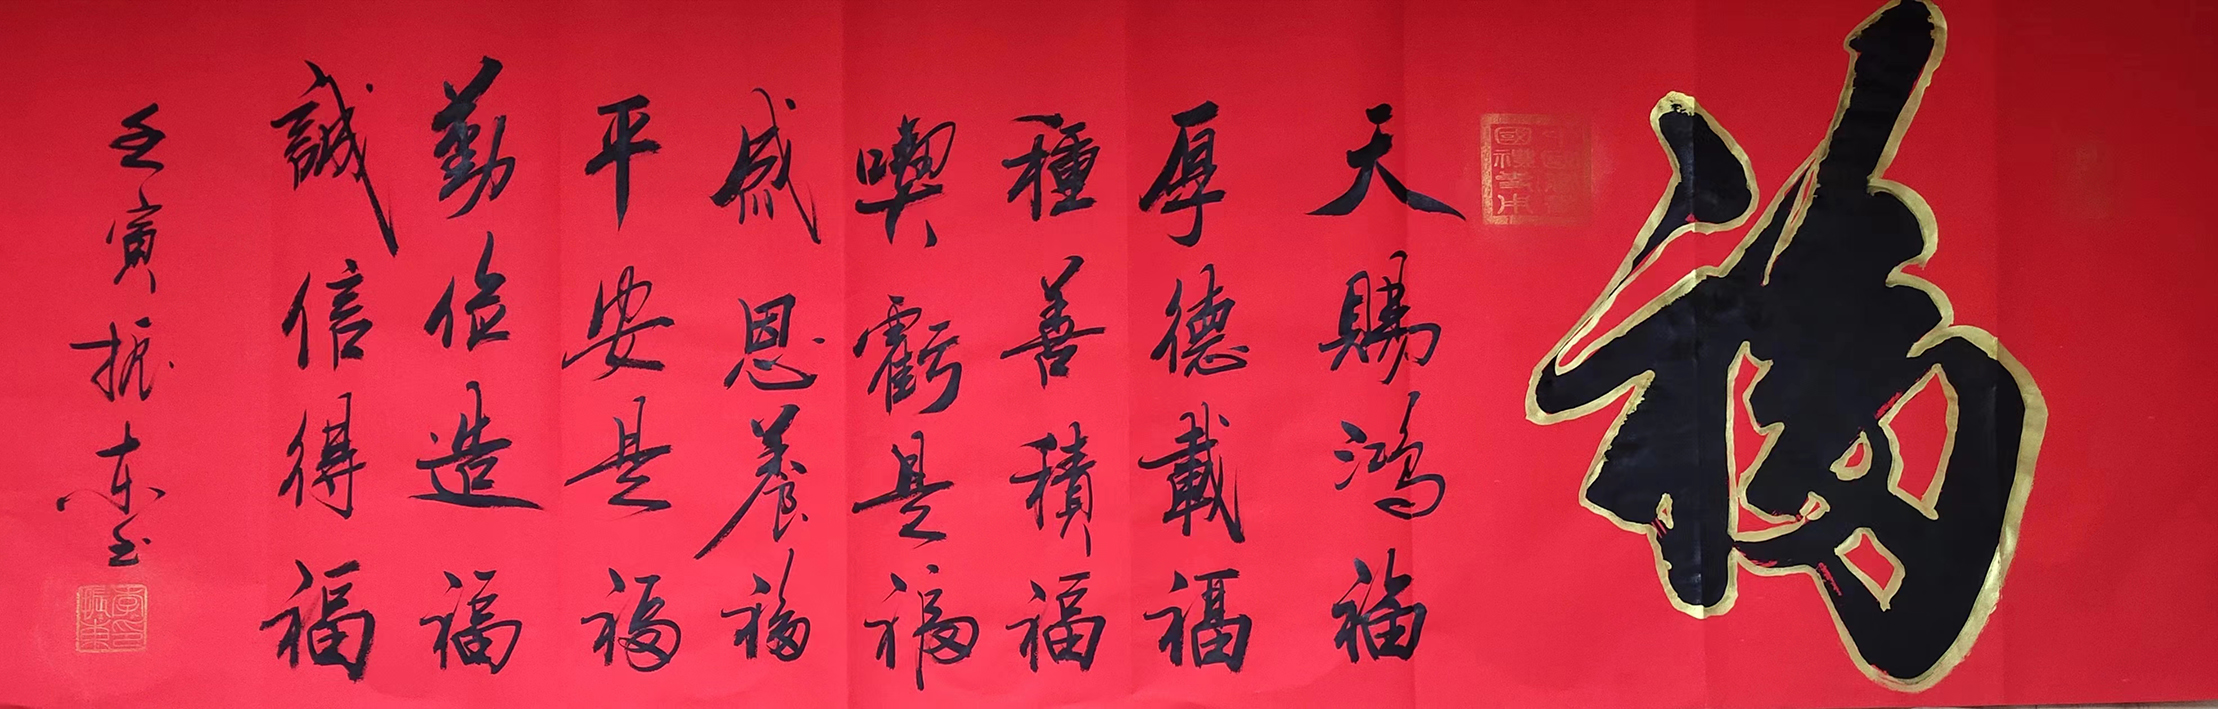 福
天賜鴻福
厚德載福
種善積福
喫虧是福
感恩養福
平安是福
勤俭造福
誠信得福
壬寅振東书
李印振東